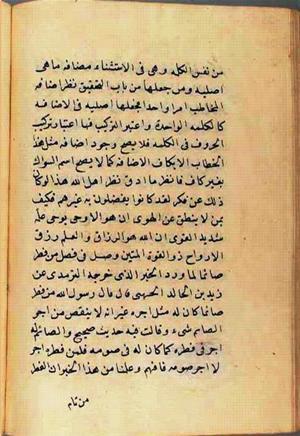 من نفس الكلمه وهى فى الاستثناء مضافه ما هى
اصليه ومن جعلها من باب التحقيق نظرا ضافه
المخاطب امرا واحدا فجعلها اصليه فى الاضافه
كالكلمه الواحدة واعتبر التركيب فيها اعتبار تركيب
الحروف فى الكلمه فلا يصح وجود اضافه مثل هذا
الخطاب الا بكاف الاضافه كما لا يصح اسم السواك
بغير كاف فانظر ما ادق نظر اهل الله هذا لو كان
ذلك عن فكر لقد كانوا يفضلون به غيرهم فكيف
بمن لا ينطق عن الهوى ان هو الا وحى يوحى علمه
شديد القوى ان الله هو الرزاق والعلم رزق
الارواح ذو القوة المتين وصل فى فصل من فطر
صائما لما ورد الخبر الذى خرجه الترمذى عن
زيد بن خالد الجهنى قال قال رسول الله من فطر
صائما كان له مثل اجره غير انه لا ينقص من اجر
الصائم شىء وقال فيه حديث صحيح والصائم له
اجر فى فطره كما كان له فى صومه فلمن فطره اجر
لا اجر صومه فافهم وعلنا من هذا الخبر ان الفعل
من تام